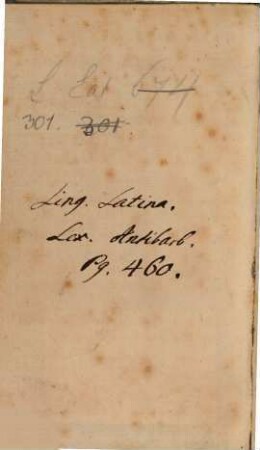 L. Lat. 677
301. 301.
Ling. Latina.
Lex. Antibarb.
Pg. 460.